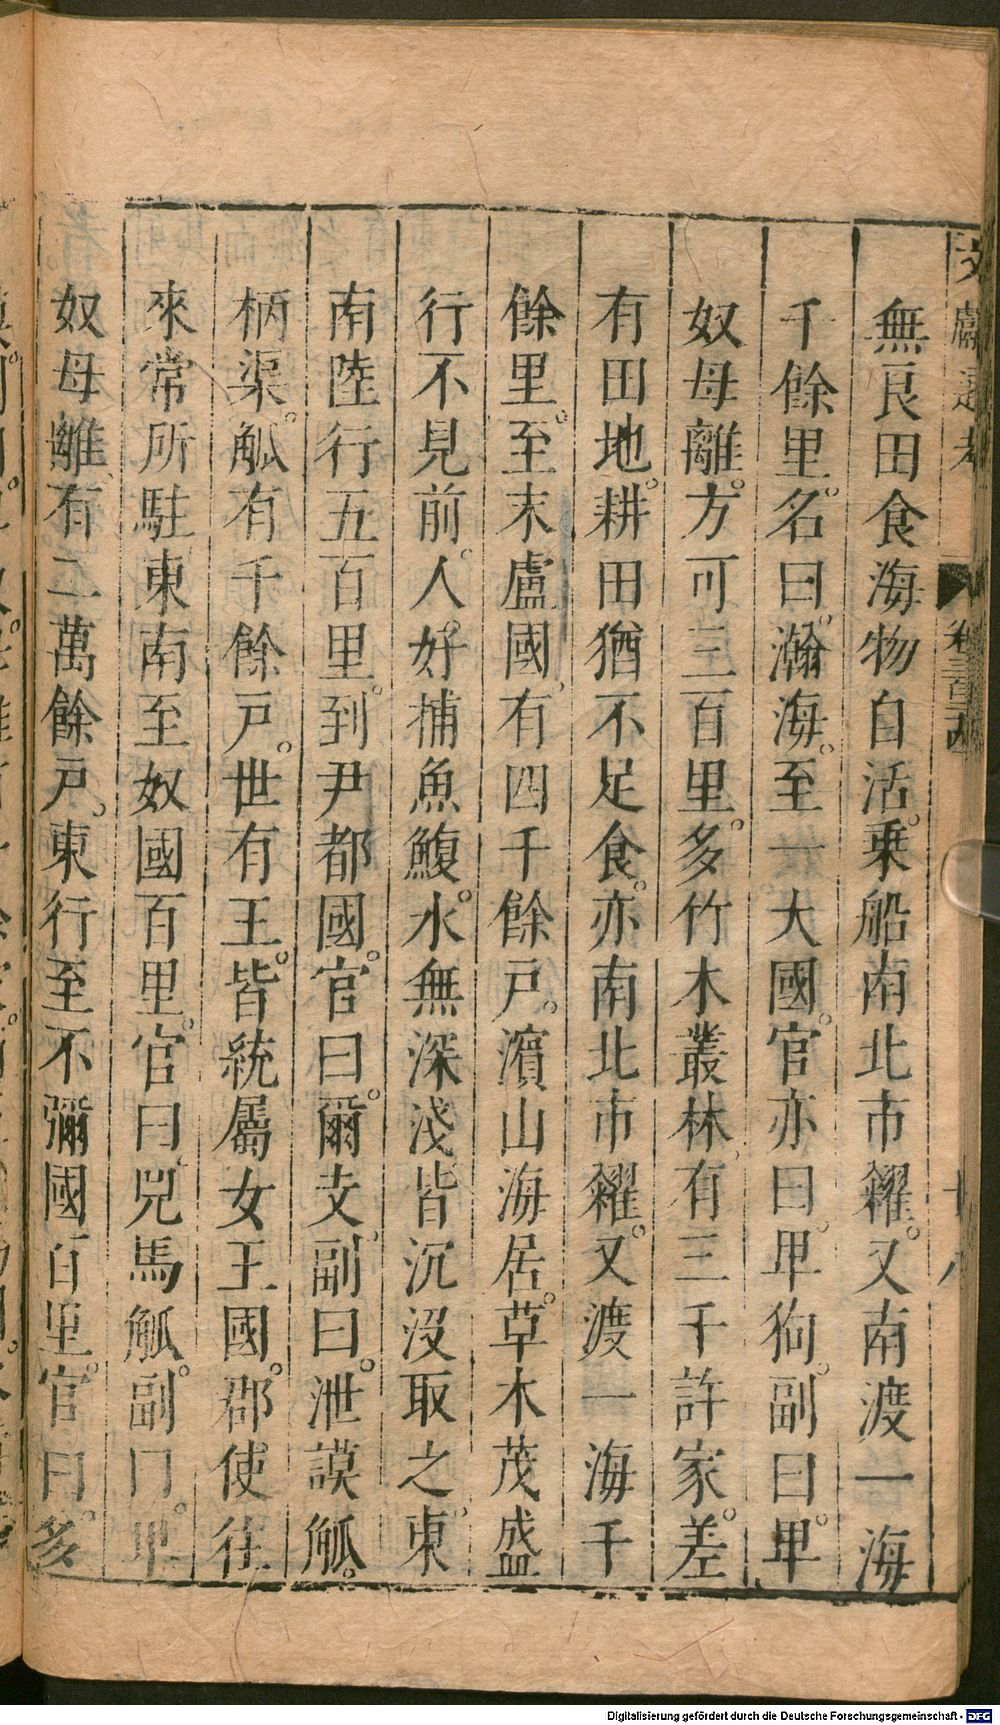 文獻通考 卷三百 十八
無良田食海物自活。乗船南北市糴。又南渡一海
千餘里。名曰瀚海。至一大國。官亦曰卑狗。副曰卑
奴母離。方可三百里。多竹木叢林。有三千許家。差
有田地。耕田猶不足食。亦南北市糴。又渡一海千
餘里。至末盧國、有四千餘戸。濵山海居。草木茂盛
行不見前。人好捕魚鰒。水無深淺皆沉沒取之。東
南陸行五百里。到尹都國。官曰。爾支、副曰。泄謨觚。
柄渠。觚有千餘戸。世有王。皆統屬女王國。郡使往
來常所駐東南至奴國百里。官曰、兕馬觚。副曰。卑
奴母離、有二萬餘戸。東行至不彌國百里。官曰。多
Digitalisierung gefördert durch die Deutsche Forschungsgemeinschaft - DFG